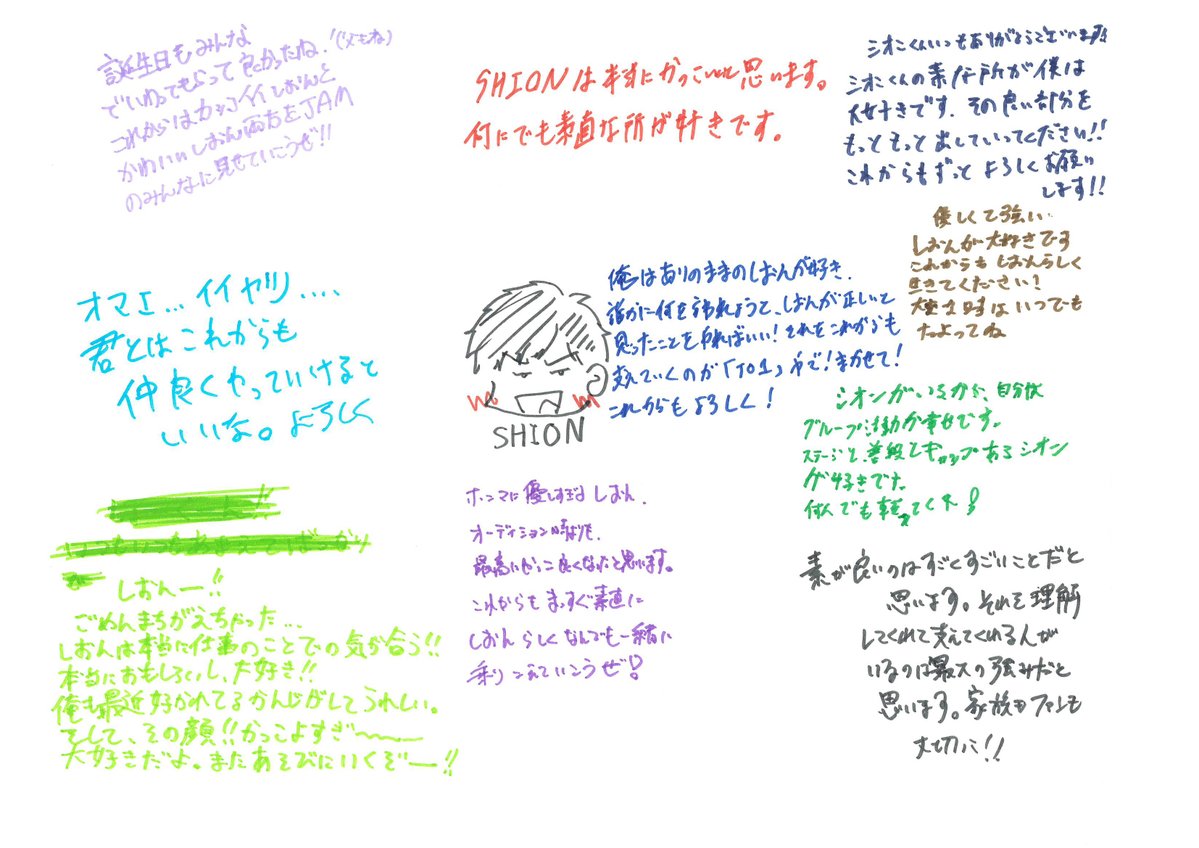 誕生日もみんな
でいわってもらって良かったね!(父もね)
これからはカッコイイしおんと
かわいいしおん両方をJAM
のみんなに見せていこうぜ!!
SHIONは本当にかっこいいと思います。
何にでも素直な所が好きです。
シオンくんいつもありがとうございます!!
シオンくんの素な所が僕は
大好きです。その良い部分を
もっともっと出していってください!!
これからもずっとよろしくお願い
します!!
優しくて強い
しおんが大好きです
これからもしおんらしく
生きてください!
大変な時はいつでも
たよってね
オマエ...イイヤツ....
君とはこれからも
仲良くやっていけると
いいな。よろしく
俺はありのままのしおんが好き.
誰かに何を言われようと、しおんが正しいと
思ったことをやればいい!それをこれからも
支えていくのが「JO1」やで!まかせて!
これからもよろしく!
SHION
シオンがいるから、自分は
グループ活動が幸せです。
ステージと、普段とギャップあるシオン
が好きです。
何でも頼ってくれ!
しおんー!!
ごめんまちがえちゃった...
しおんは本当に仕事のことでの気が合う!!
本当におもしろいし、大好き!!
俺も最近好かれてるかんじがしてうれしい。
そして、その顔!!かっこよすぎ〜
大好きだよ。またあそびにいくぞー!!
ホンマに優しすぎるしおん.
オーディション時よりも.
最高にかっこ良くなったと思います。
これからもまっすぐ素直に
しおんらしくなんでも一緒に
乗りこえていこうぜ!
素が良いのはすごくすごいことだと
思います。それを理解
してくれて支えてくれる人が
いるのは最大の強みだと
思います。家族もファンも
大切に!!